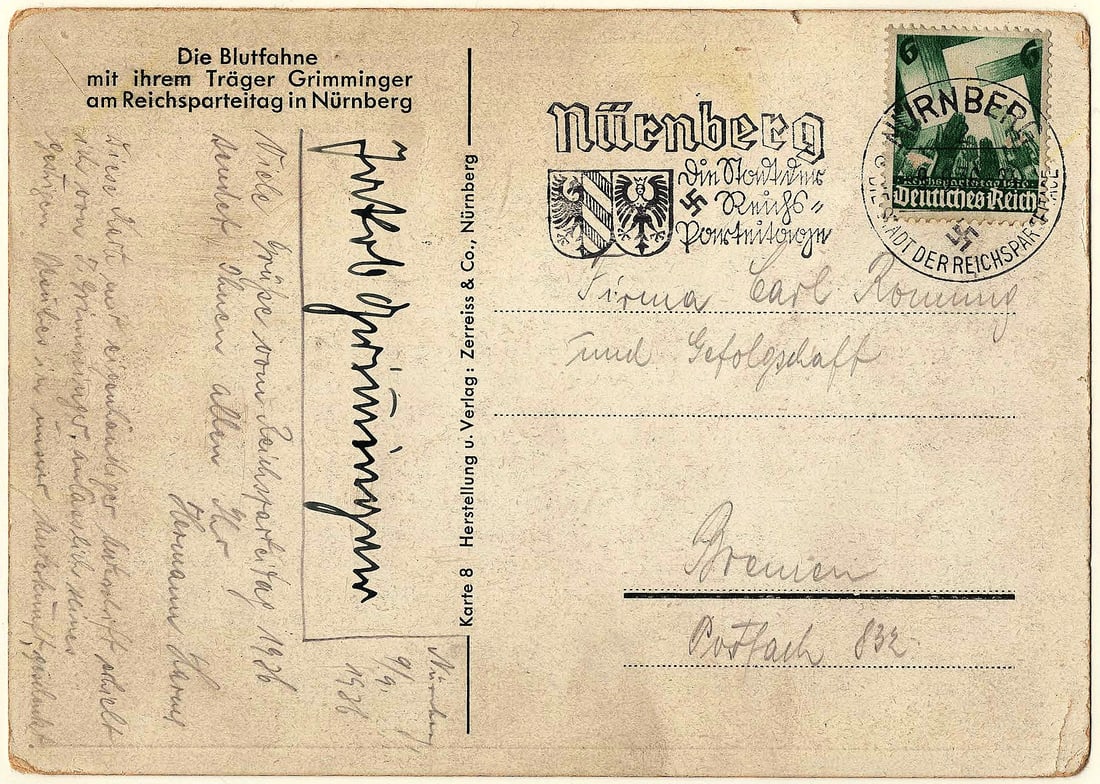 Die Blutfahne
mit ihrem Träger Grimminger
am Reichsparteitag in Nürnberg
Nürnberg
9/9.
1936
Jakob Grimminger
Viele Grüße vom Reichsparteitag 1936
sendet Ihnen allen Ihr
Hermann
Diese Karte mit eigenhändiger Unterschrift erhielt
ich von J. Grimminger anläßlich seines
Karte 8 Herstellung u. Verlag: Zerreiss & Co., Nürnberg
Nürnberg
Die Stadt der
Reichs-
parteitage
6 6
Reichsparteitag 1936
Deutsches Reich
NÜRNBERG
DIE STADT DER REICHSPARTEITAGE
Firma Carl Ronning
und Gefolgschaft
Bremen
Postfach 832